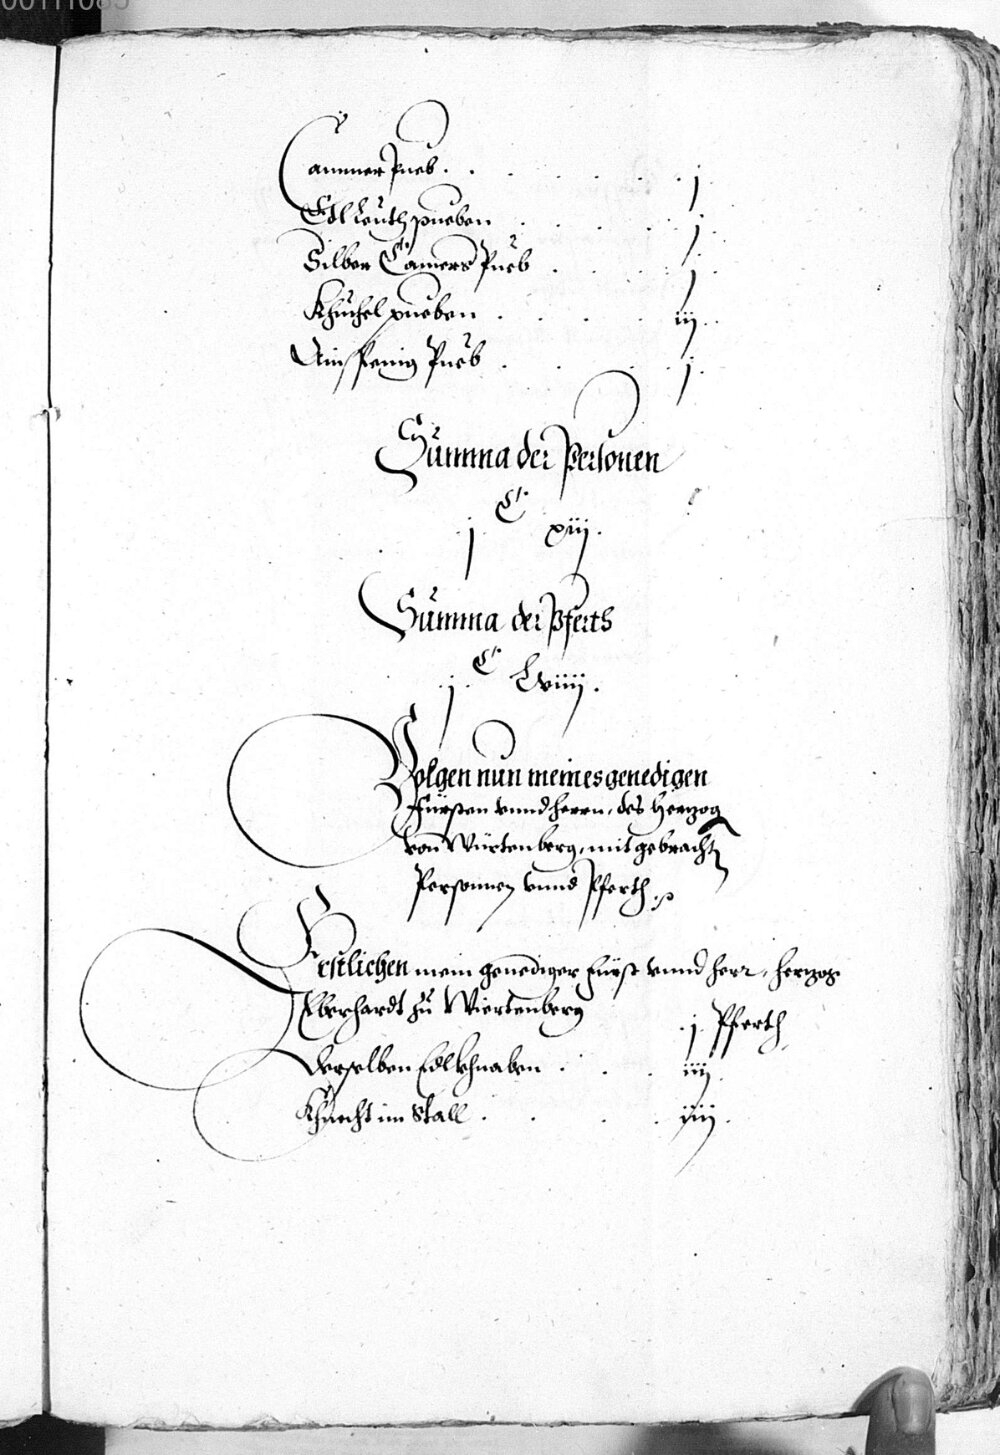 00111085
Cammer Pueb . . . . . . . j .
Edl Leuth pueben . . . . . j .
Silber Camers Pueb . . . . j
Khuchel pueben . . . . iij . .
Ainspenig Pueb . . . . j .
Summa der Personen
j C xiij .
Summa der Pferts
j . C Lviiij .
Volgen nun meines genedigen
Fürsten vnnd herrn, des Hertzog
von Würtenberg, mit gebracht
Personnen vnnd Pferth
Erstlichen mein genediger fürst vnnd herr, hertzog
Eberhardt zu Wiertenberg . j . Pferth
Derselben Edlkhnaben . . . iiij .
Khnecht im Stall . . . . iiij .